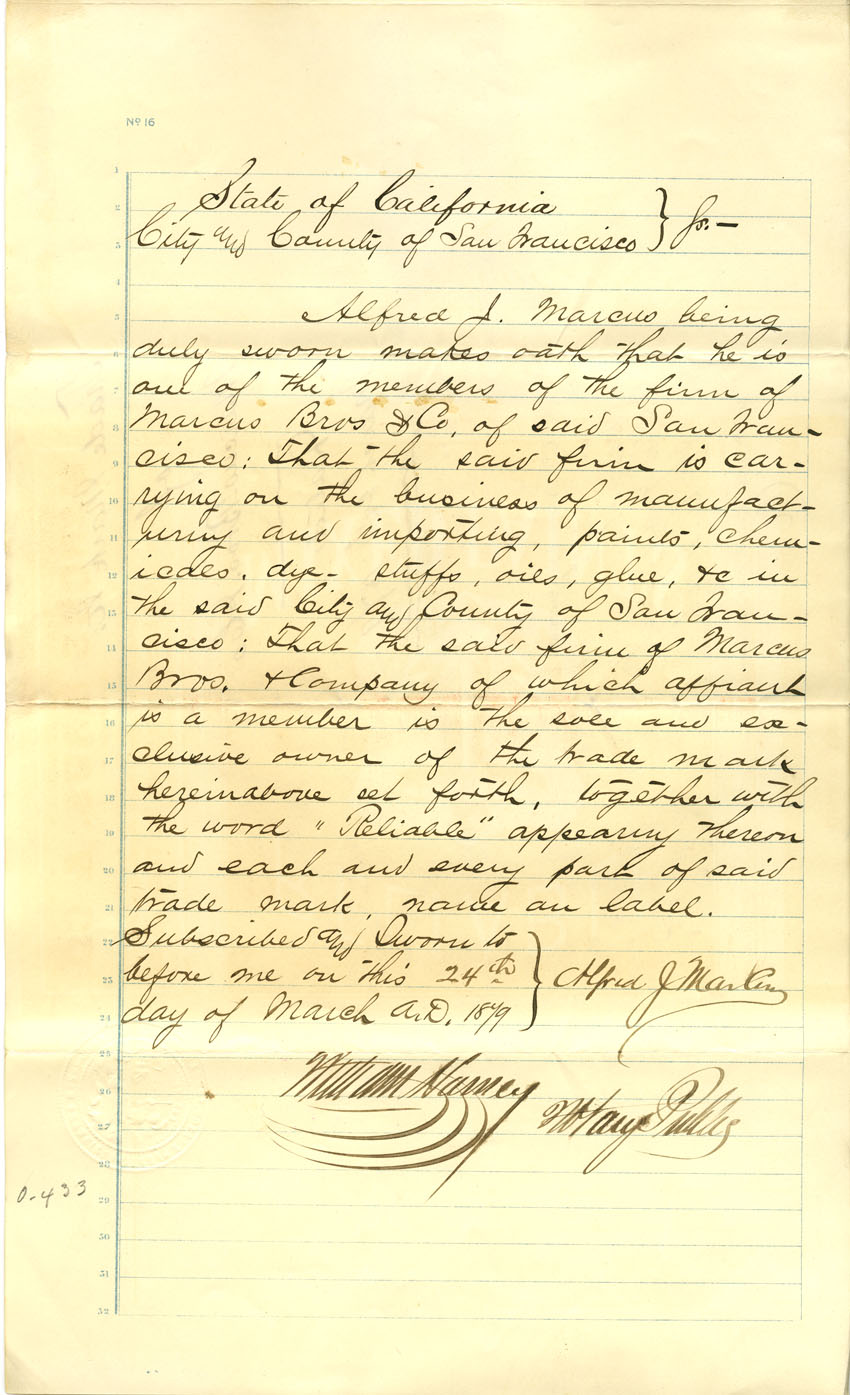 Nº 16
State of California
City and County of San Francisco } ss.—
Alfred J. Marcus being
duly sworn makes oath that he is
one of the members of the firm of
Marcus Bros & Co, of said San Fran-
cisco: That the said firm is car-
rying on the business of manufact-
uring and importing, paints, chem-
icals, dye- stuffs, oils, glue, &c in
the said City and County of San Fran-
cisco: That the said firm of Marcus
Bros. & Company of which affiant
is a member is the sole and ex-
clusive owner of the trade mark
hereinabove set forth, together with
the word "Reliable" appearing thereon
and each and every part of said
trade mark, name an label.
Subscribed and Sworn to
before me on this 24th } Alfred J Marcus
day of March A.D. 1879
William Harney
Notary Public
0-433
1
2
3
4
5
6
7
8
9
10
11
12
13
14
15
16
17
18
19
20
21
22
23
24
25
26
27
28
29
30
31
32